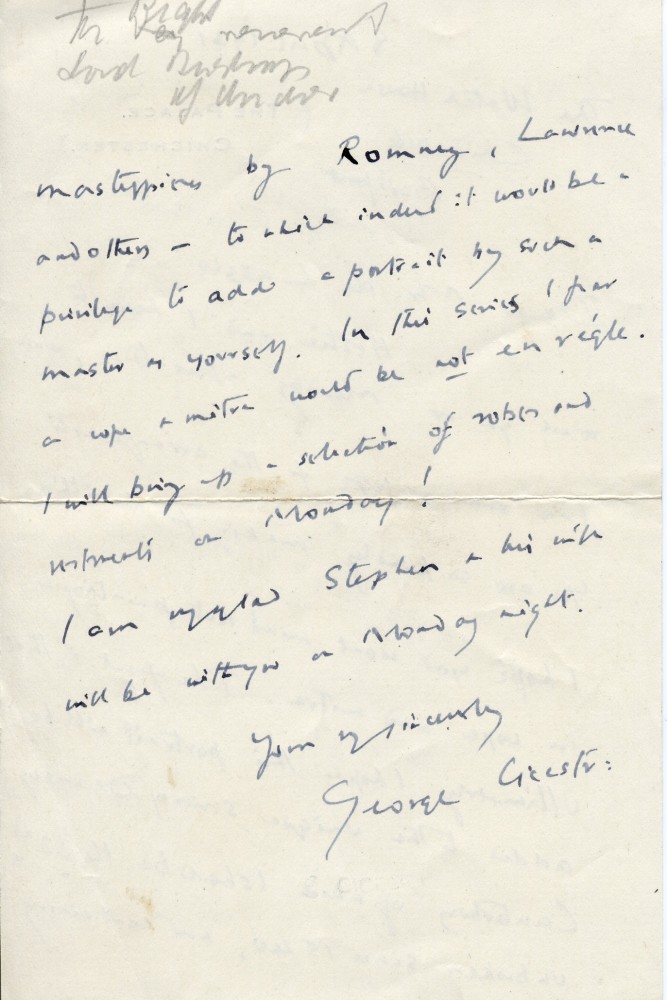 The Right
Very reverend
Lord Bishop
of
masterpieces by Romney, Lawrence
and others – to which indeed it would be a
privilege to add a portrait by such a
master as yourself. In this series I fear
a cope & mitre would be not en règle.
I will bring up a selection of robes and
vestments on Monday!
I am very glad Stephen & his wife
will be with you on Monday night.
Yours very sincerely
George Cicestr:
THE PALACE,
CHICHESTER.